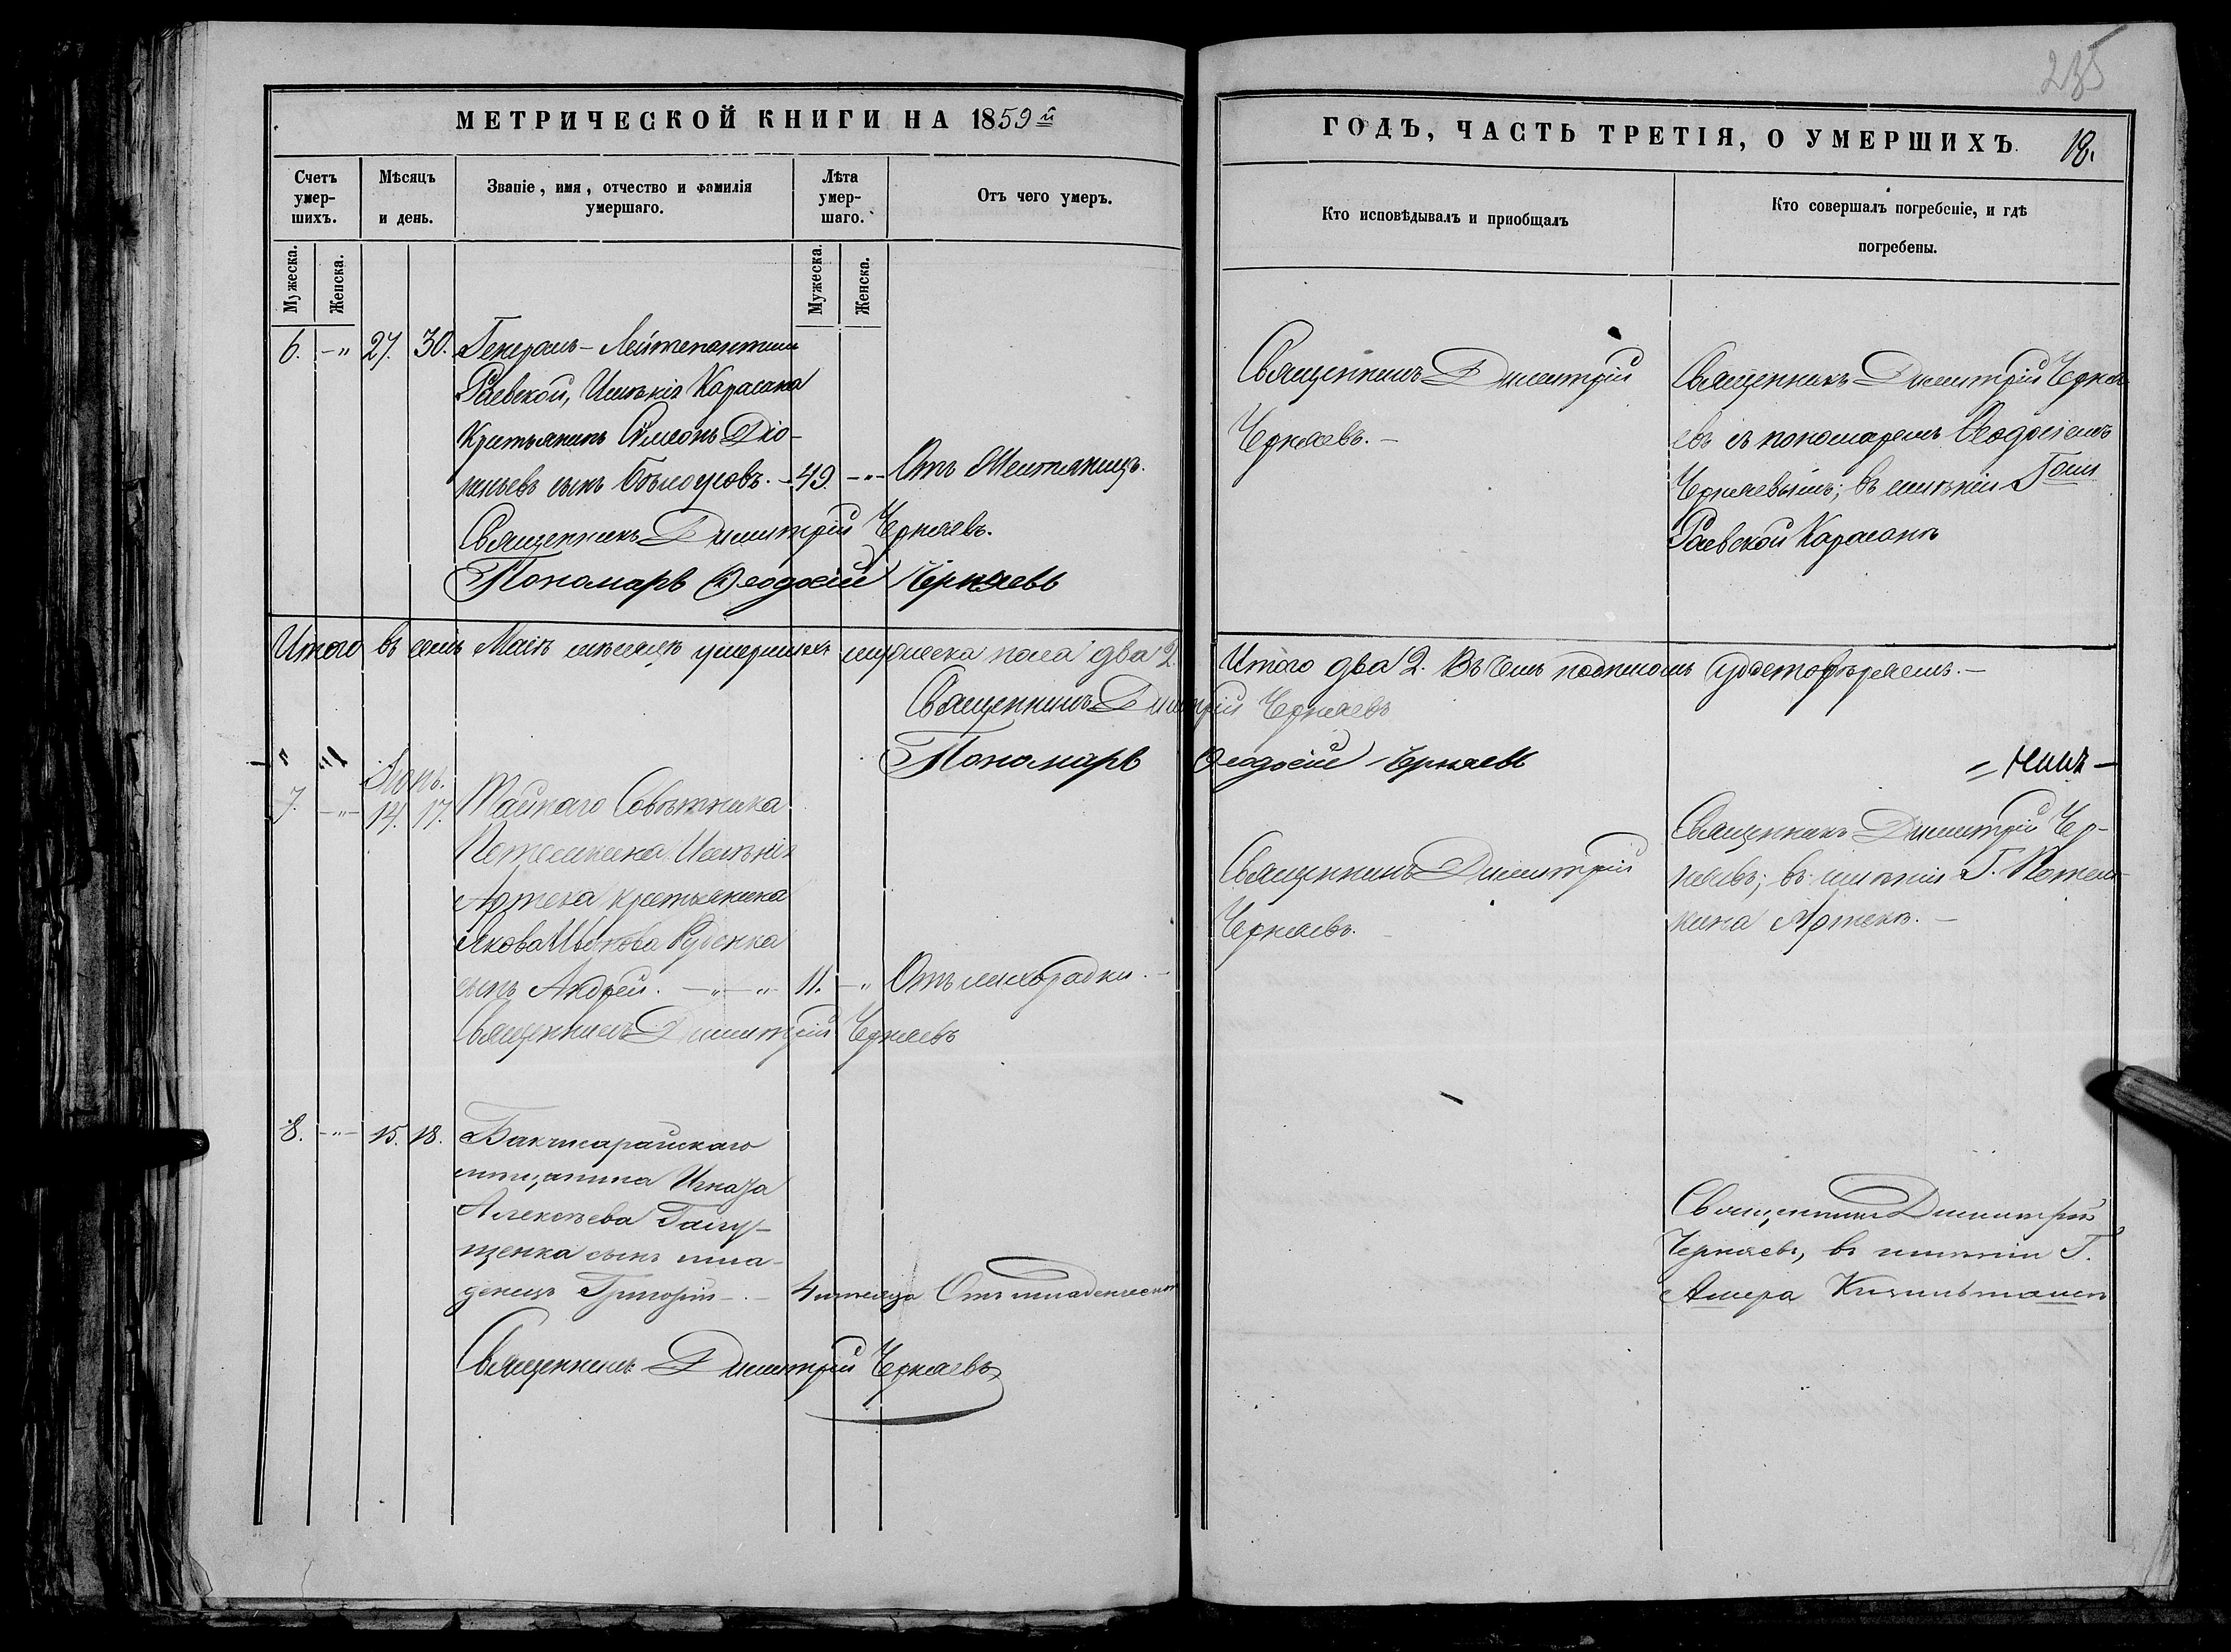 235
МЕТРИЧЕСКОЙ КНИГИ НА 1859й
ГОДЪ, ЧАСТЬ ТРЕТІЯ, О УМЕРШИХЪ.
18.
Счетъ умер-шихъ.
Мѣсяцъ и день.
Званіе, имя, отчество и фамилія
умершаго.
Лѣта умер-шаго.
Отъ чего умеръ.
Кто исповѣдывалъ и пріобщалъ
Кто совершалъ погребеніе, и гдѣ
погребены.
Мужеска.
Женска.
Мужеска.
Женска.
6. -"- 27. 30. Генералъ-Лейтенантши
Раевской, Имѣнія Карасана
Крестьянинъ Симеонъ Діо-
ньевъ сынъ Бѣлоусовъ. - 49. -"- Отъ
Священникъ Димитрій Черняевъ.
Пономарь Ѳеодосій Черняевъ
Священникъ Димитрій
Черняевъ. -
Священникъ Димитрій Черня-
евъ съ пономаремъ Ѳеодосіемъ
Черняевымъ; въ имѣніи Гжи
Раевской Карасанъ
Итого въ семъ Маѣ мѣсяцѣ умершихъ мужеска пола два 2.
Итого два 2. Въ чемъ подписомъ удостовѣряемъ. -
Священникъ Димитрій Черняевъ
Пономарь Ѳеодосій Черняевъ
Іюнь.
7. -"- 14. 17. Тайнаго Совѣтника
Потемкина Имѣнія
Артека крестьянина
Якова Руденка
сынъ Андрей. -"-"- 11. -"- Отъ лихорадки. -
Священникъ Димитрій Черняевъ
Священникъ Димитрій
Черняевъ.
Священникъ Димитрій Чер-
няевъ; въ имѣніи Г. Потем-
кина Артекъ. -
8. -"- 15. 18. Бакчисарайскаго
мѣщанина Игната
Алексѣева Галу-
щенка сынъ мла-
денецъ Григорій - . - 4 мѣсяца Отъ младенческой
Священникъ Димитрій Черняевъ
Священникъ Димитрій
Черняевъ, въ имѣніи Г.
Ашера Кизильташъ